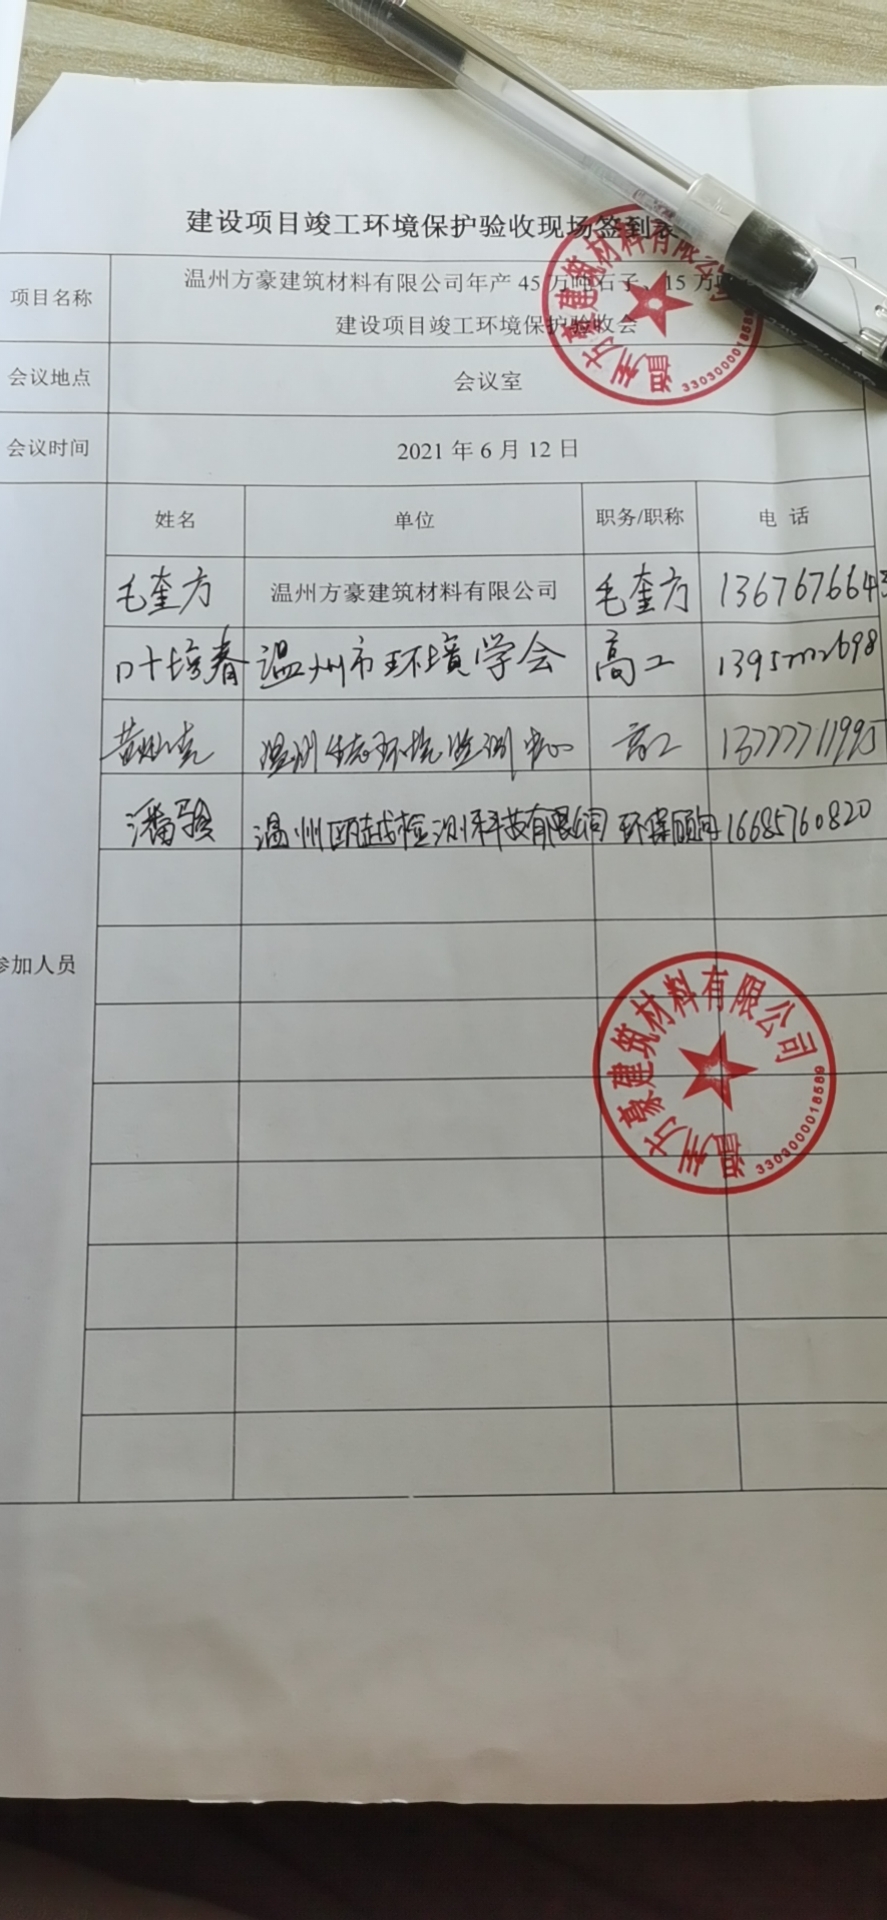 建设项目竣工环境保护验收现场签到表
项目名称
温州方豪建筑材料有限公司年产 45 万吨石子、15 万
建设项目竣工环境保护验收会
会议地点
会议室
会议时间
2021 年 6 月 12 日
参加人员
姓名 单位 职务/职称 电 话
毛奎方 温州方豪建筑材料有限公司 毛奎方 1367676643
叶培春 温州市环境学会 高工
温州生态环境监测中心 高工 13777711995
潘骏 温州瓯越检测科技有限公司 环保顾问 16685760820
温州方豪建筑材料有限公司
3303000018589
温州方豪建筑材料有限公司
3303000018589